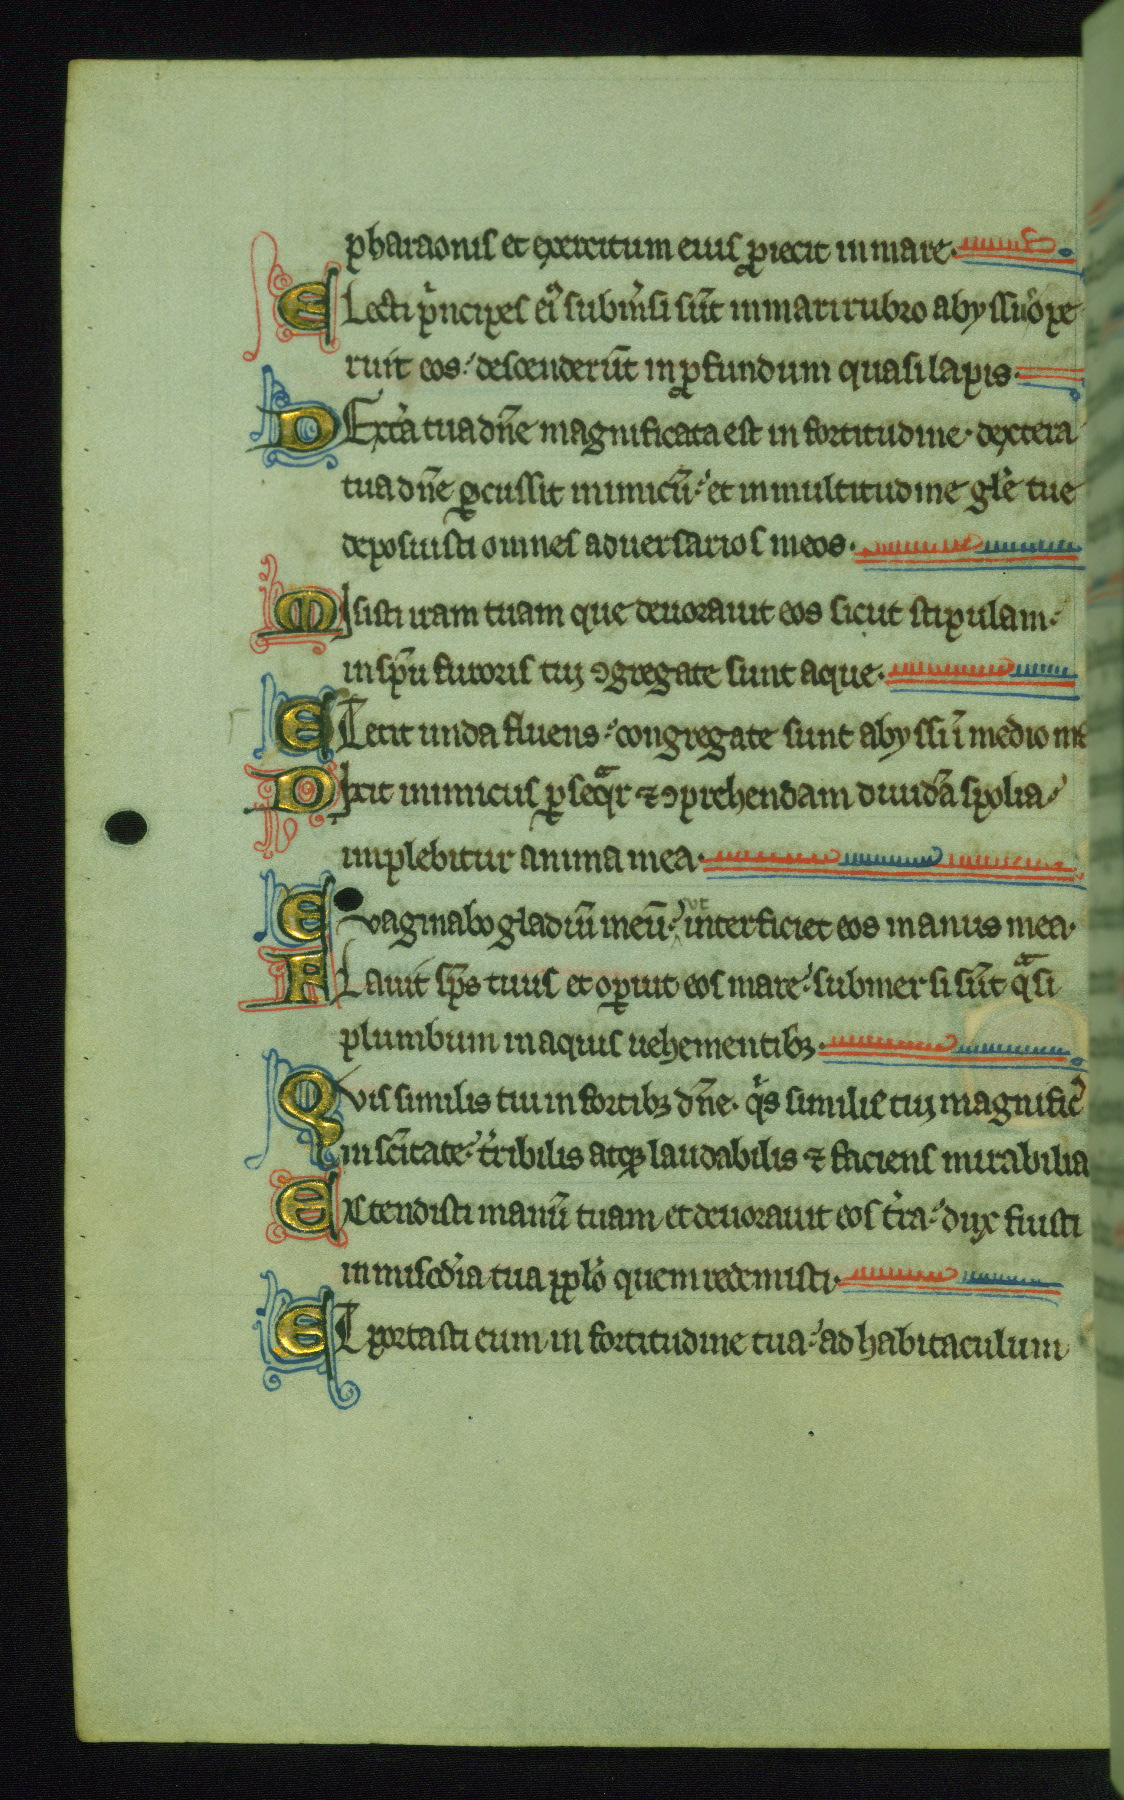 pharaonis et exercitum eius ꝓiecit in mare.
Electi p̾ncipes ei᷒ subm̾si sūt in mari rubro abyssi ope
ruit eos. descenderūt in ꝓfundum quasi lapis.
DExt̾a tua dn̄e magnificata est in fortitudine. dextera
tua dn̄e ꝑcussit inimicū. et in multitudine gl̄e tue
deposuisti omnes aduersarios meos.
Misisti iram tuam que deuorauit eos sicut stipulam.
in sp̄u furoris tui ꝯgregate sunt aque.
Stetit unda fluens. congregate sunt abyssi ī medio
Dixit inimicus ꝑseqͣr ⁊ ꝯprehendam diuidā spolia
implebitur anima mea.
Evaginabo gladiū meū. ut interficiet eos manus mea.
Flauit sp̄s tuus et oꝑuit eos mare. submersi sūt qͣsi
plumbum in aquis uehementibꝫ.
Qvis similis tui in fortibꝫ dn̄e. qͥs simil̾ tui magnific᷒
in sc̄itate. t̾ribilis atqꝫ laudabilis ⁊ faciens mirabilia
Extendisti manū tuam et deuorauit eos t̾ra. dux fuisti
in mis̄cd̾ia tua ppl̄o quem redemisti.
Et portasti eum in fortitudine tua. ad habitaculum